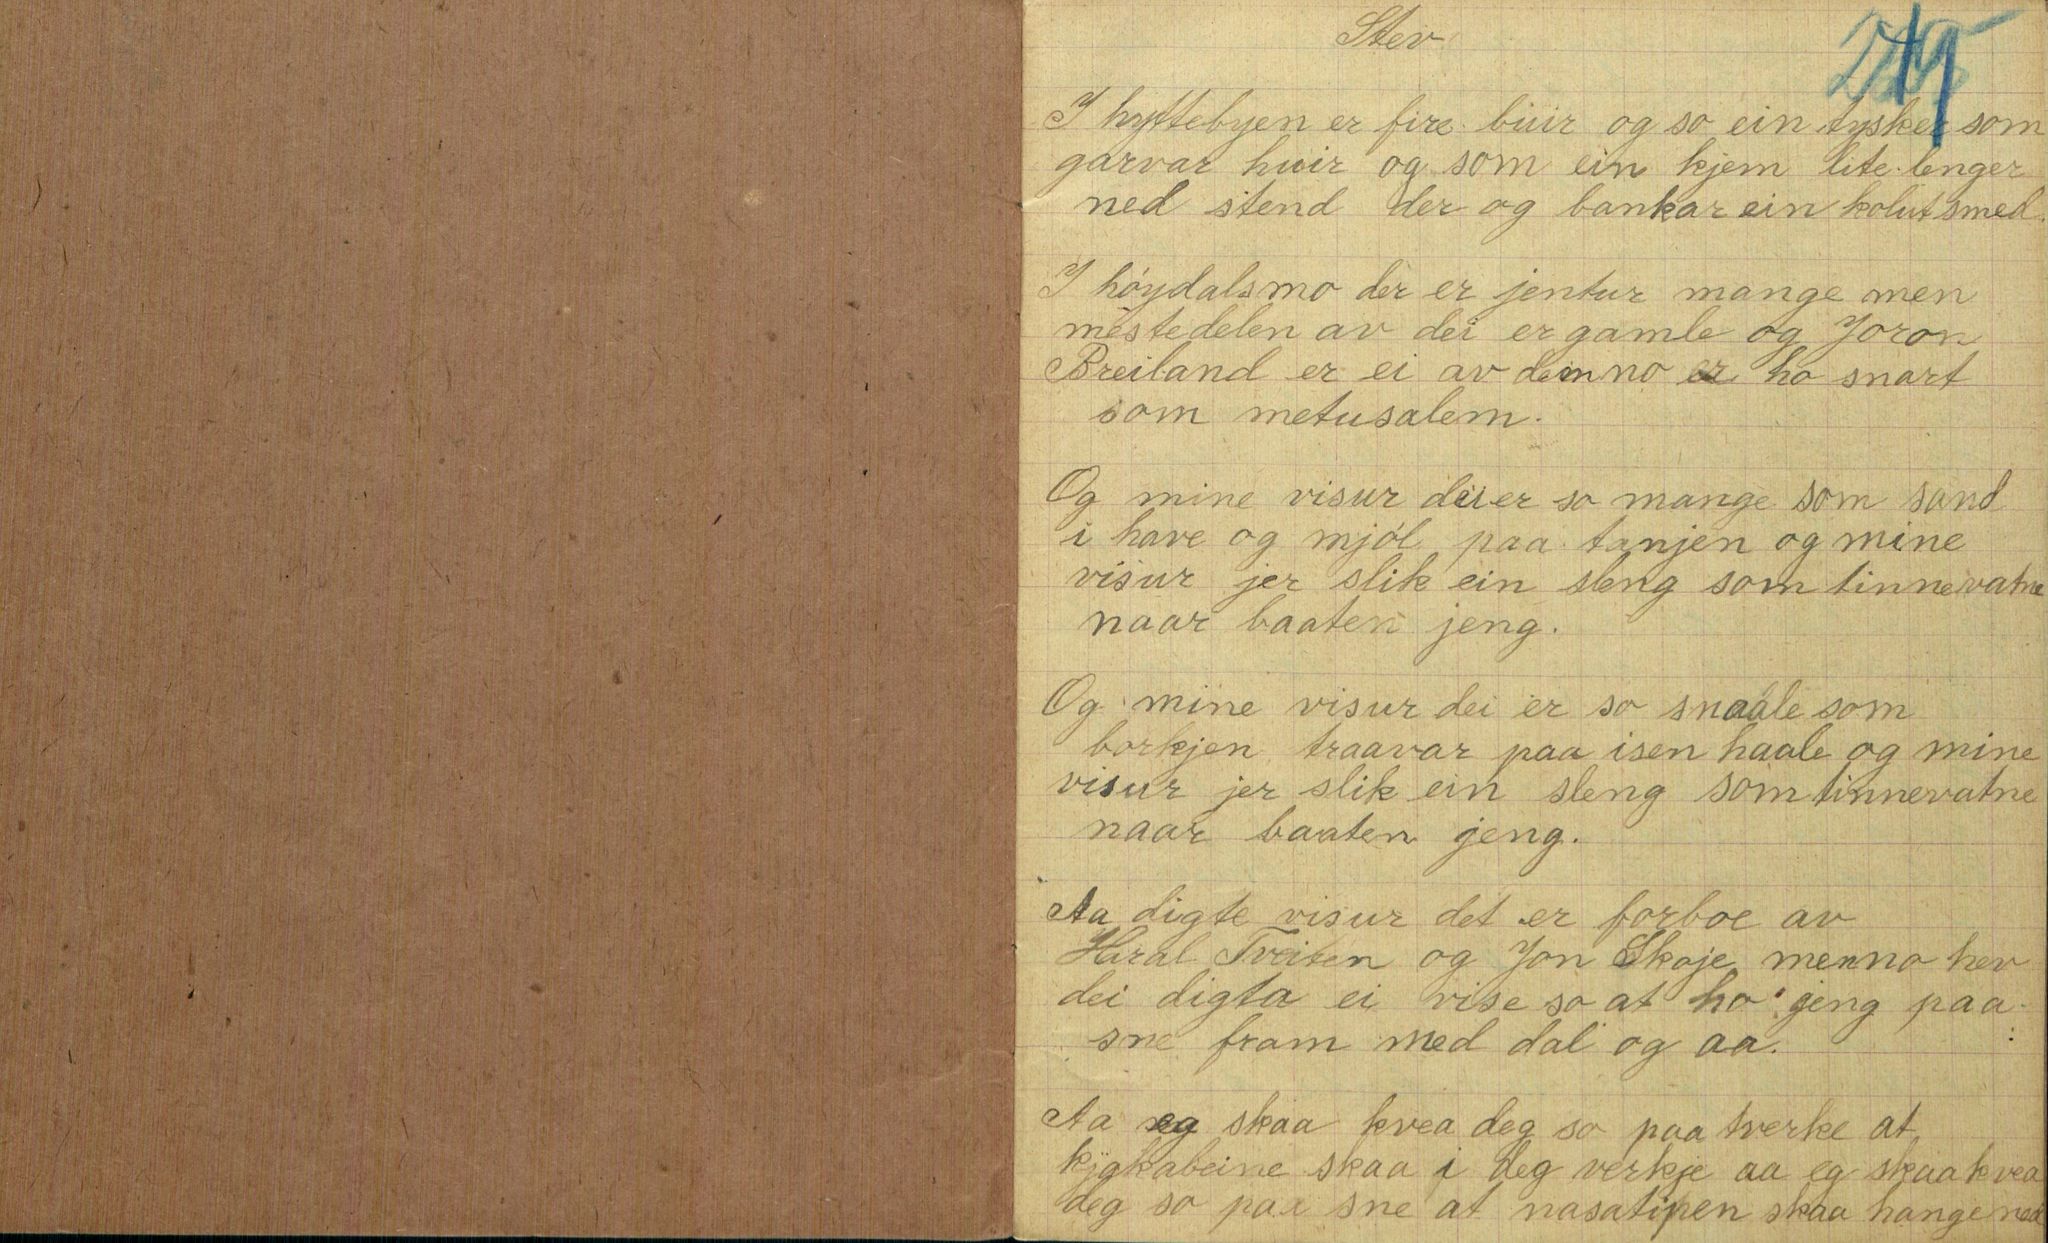 Stev
I hyttebyen er fire buir og so ein tysker som
garvar huir og som ein kjem lite lenger
ned stend der og bankar ein kolutsmed.
I höydalsmo der er jentur mange men
mestedelen av dei er gamle og Joron
Breiland er ei av dem no er ho snart
som metusalem.
Og mine visur dei er so mange som sand
i have og mjöl paa tanjen og mine
visur jer slik ein sleng som tinnevatne
naar baaten jeng.
Og mine visur dei er so snaale som
borkjen traavar paa isen haale og mine
visur jer slik ein sleng som tinnevatne
naar baaten jeng.
Aa digte visur det er forboe av
Haral Tveiten og Jon Skoje men no hev
dei digta ei vise so at ho jeng paa
sne fram med dal og aa.
Aa eg skaa kvea deg so paa tverke at
kjykabeine skaa i deg verkje aa eg skaa kvea
deg so paa sne at nasatipen skaa hange ned